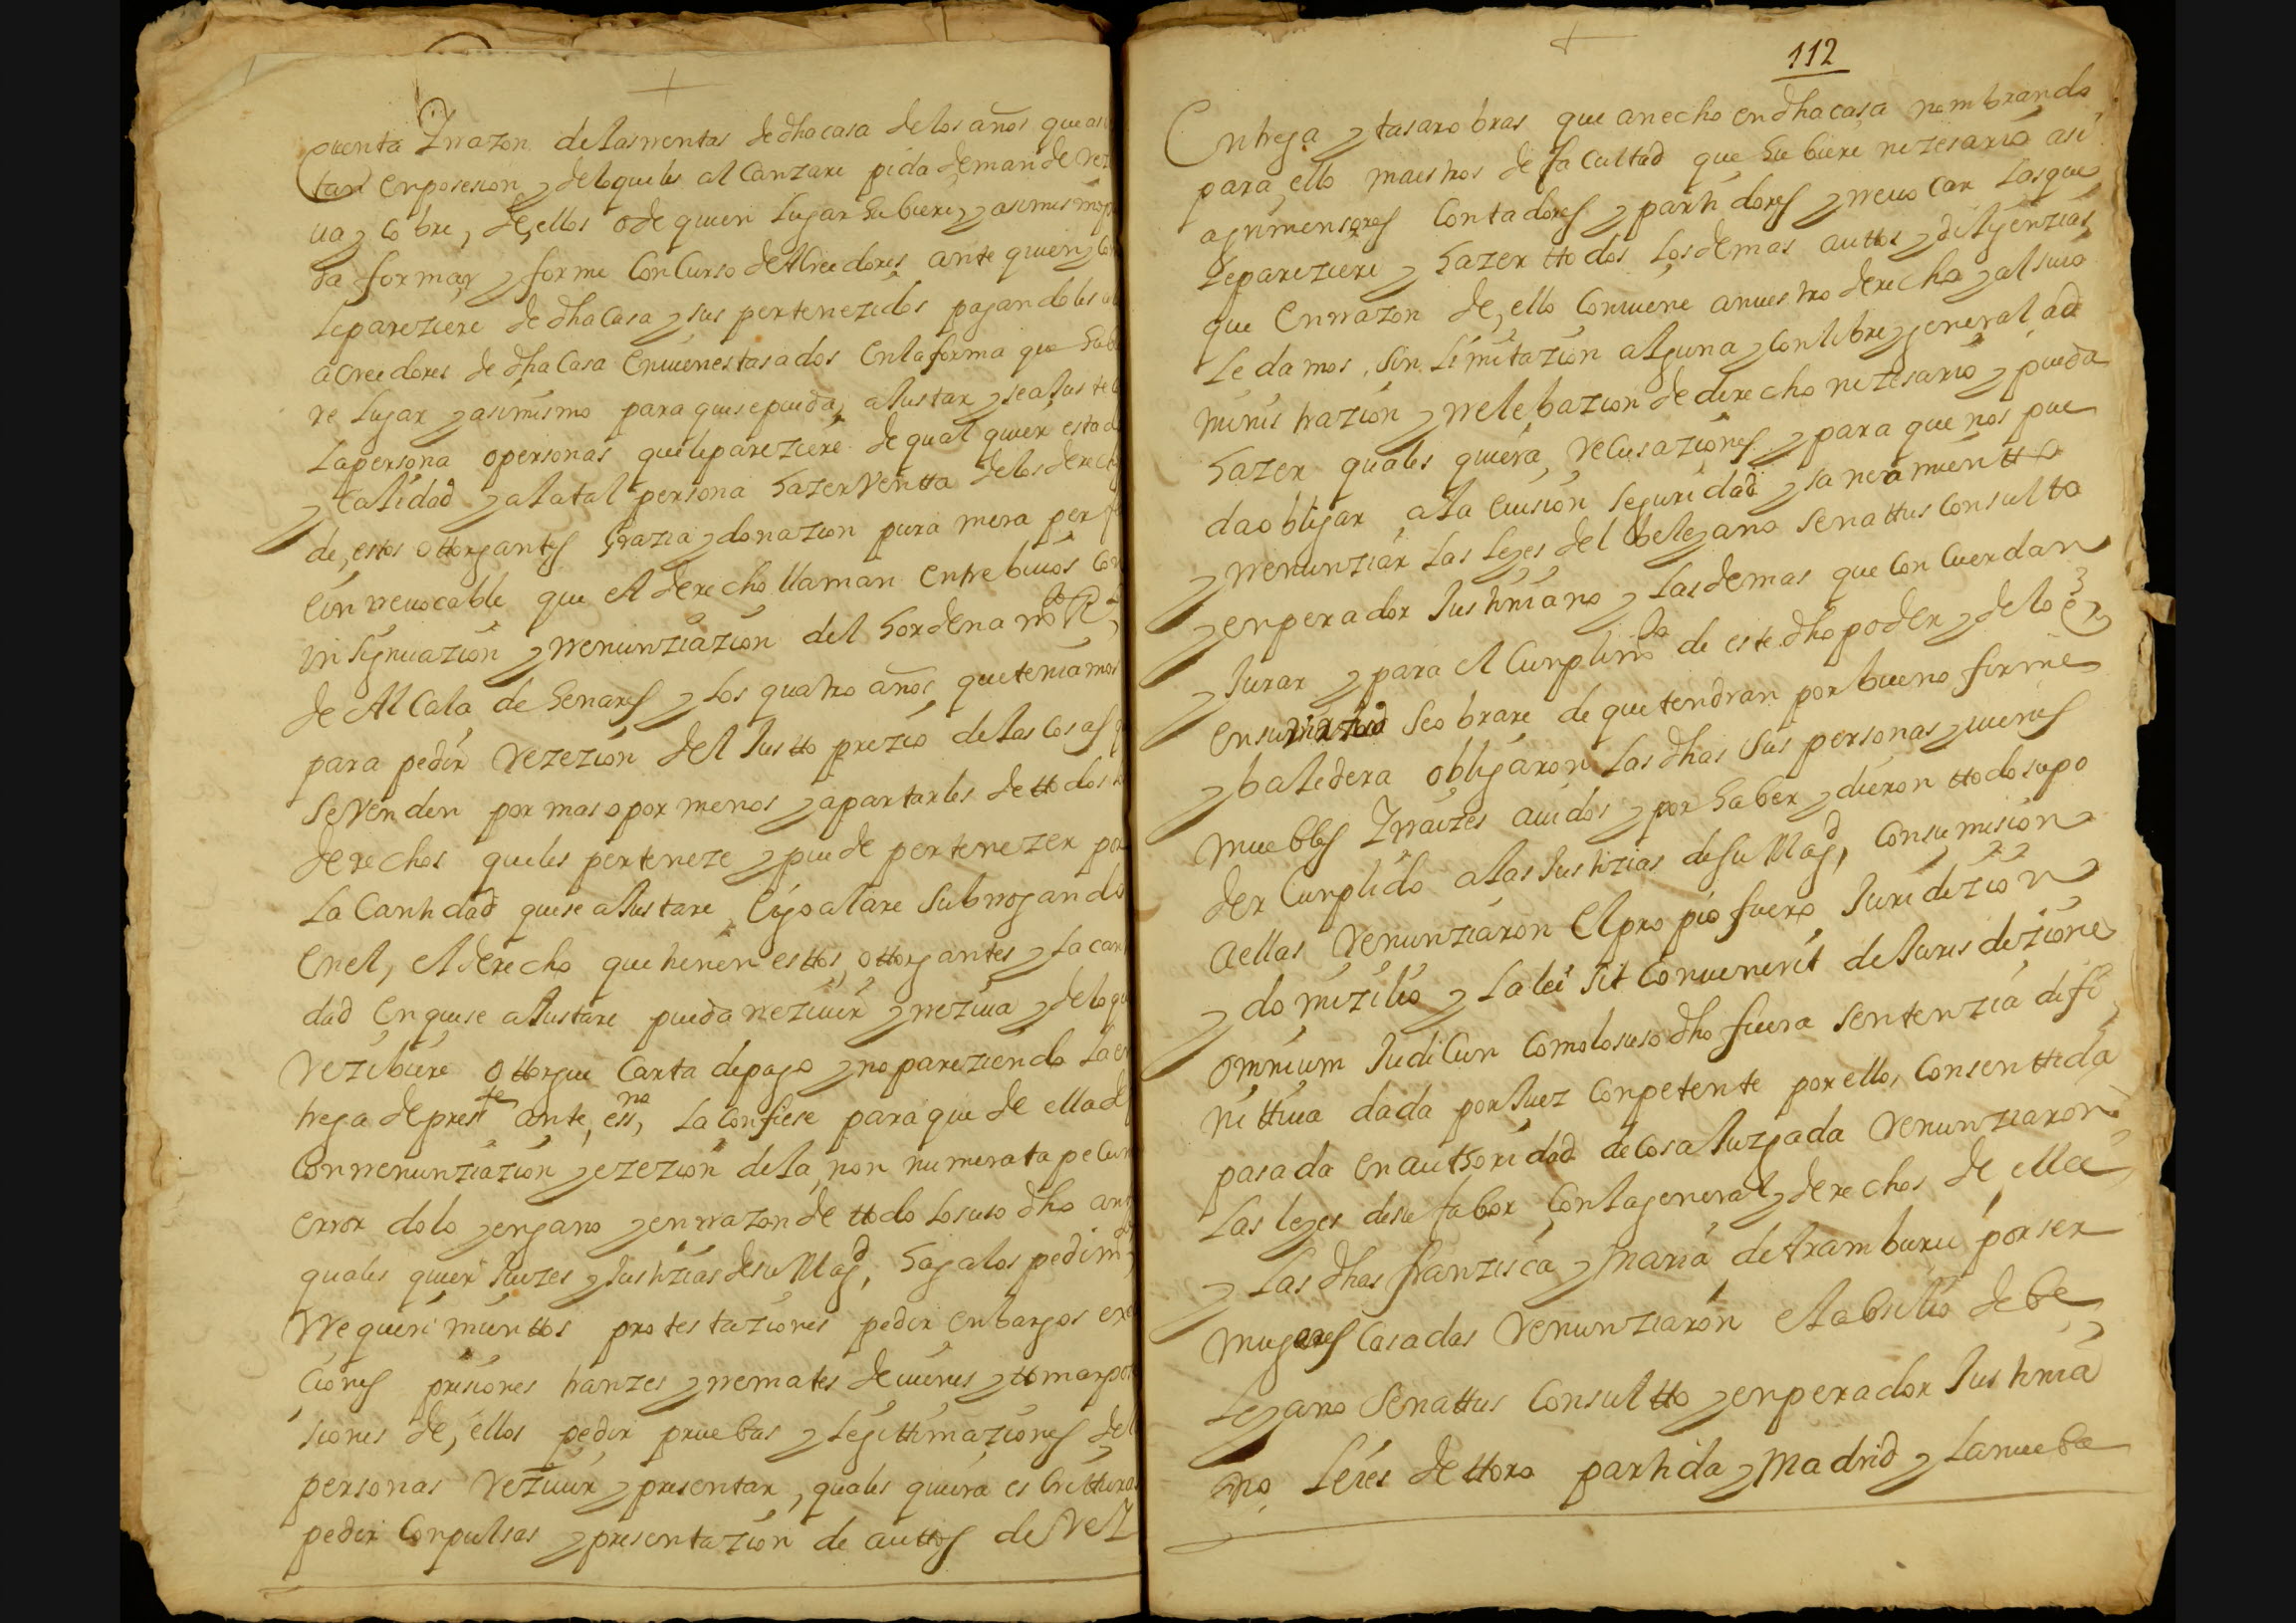 quenta Y rrazon de las rrentas de dha casa de los años que a es
tan en posesion y de lo que les alcanzare pida demande rez
ua y cobre, de, ellos o de quien lugar hubiere y asimismo p
da formar y forme Concurso de Acreedores ante quien y con
le pareziere de dha Casa y sus pertenezidos pagandoles a
acreedores de dha Casa en uienes tasados en la forma que hub
re lugar y asimismo para que se pueda, aJustar y se aJuste
La persona o personas que le pareziere de qual quier estado
y Calidad y a la tal persona hazer Ventta de los derech
de, estos ottorgantes Grazia y donazion pura mera perfe
e irrevocable que el derecho llaman entre biuos con
insignuazion y rrenunziazion del hordenamto Rl
de Alcala de henares y Los quatro años, que teniamos
para pedir rezezion del Justto prezio de las cosas q
se venden por mas o por menos y apartarles de ttodos
derechos que les perteneze y puede pertenezer por
La Cantidad que se aJustare e ygoalare Subrrogando
en el, el derecho que tienen esttos, ottorgantes y La can
dad en que se aJustare pueda reziuir y rreziua y de lo qu
rezibiere ottorgue Carta de pago y no pareziendo La en
trega de preste ante, essno, La confiese para que de ella de
Con rrenunziazion y ezezion de la, non numerata pecun
error dolo y engano y en rrazon de ttodo Lo suso dho ant
quales quier Juezes y Justizias de su Magd, haga los pedimtos
rrequerimienttos protestaziones pedir enbargos exe
Ciones prisiones tranzes y rremates de uienes y ttomar pose
siones de, ellos pedir pruebas y Legittimaziones de l
personas reziuir y presentar, quales quiera escritturas
pedir Conpulsas y presentazion de auttos de Vel
112
Entrega y tasar obras que an echo en dha casa nombrando
para, ello maestros de facultad que hubiere nezesario asi
agrimensores Contadores y partidores y rreuocar Las que
Le pareziere y hazer ttodos Los demas auttos y diligenzias
que en rrazon de, ello Conuiene a nuestro derecho y al suio
Le damos, sin Limitazion alguna y con libre y general ad
ministrazion y rrelebazion de derecho nezesario y pueda
hazer quales quiera, recusaziones y para que nos pue
da obligar a la euision seguridad y saneamientto
y rrenunziar Las Leyes del beleyano senattus consulto
y enperador Justiniano y Las demas que Concuerdan
y Jurar y para el Cunplimto de este dho poder y de lo q
en su virtud se obrare de que tendran por bueno firme
y baledera obligaron Las dhas sus personas y uienes
muebles Y rraizes auidos y por haber y dieron ttodo su po
der Cunplido a las Justizias de su Magd, Con sumision
a ellas renunziaron el propio fuero Juridizion
y domizilio y La lei sit Conuenerit de Juris dizione
omnium Judicun como lo suso dho fuera sentenzia difi
nittiua dada por Juez Conpetente por ellos Consenttida
pasada en authoridad de Cosa Juzgada renunziaron
Las leyes de su fabor Con la general y derechos de, ella
y Las dhas franzisca y maria de Aramburu por ser
mugeres Casadas renunziaron el absilio de be
Leyano Senattus Consultto y enperador Justinia
no Leies de ttoro partida y Madrid y La nueba